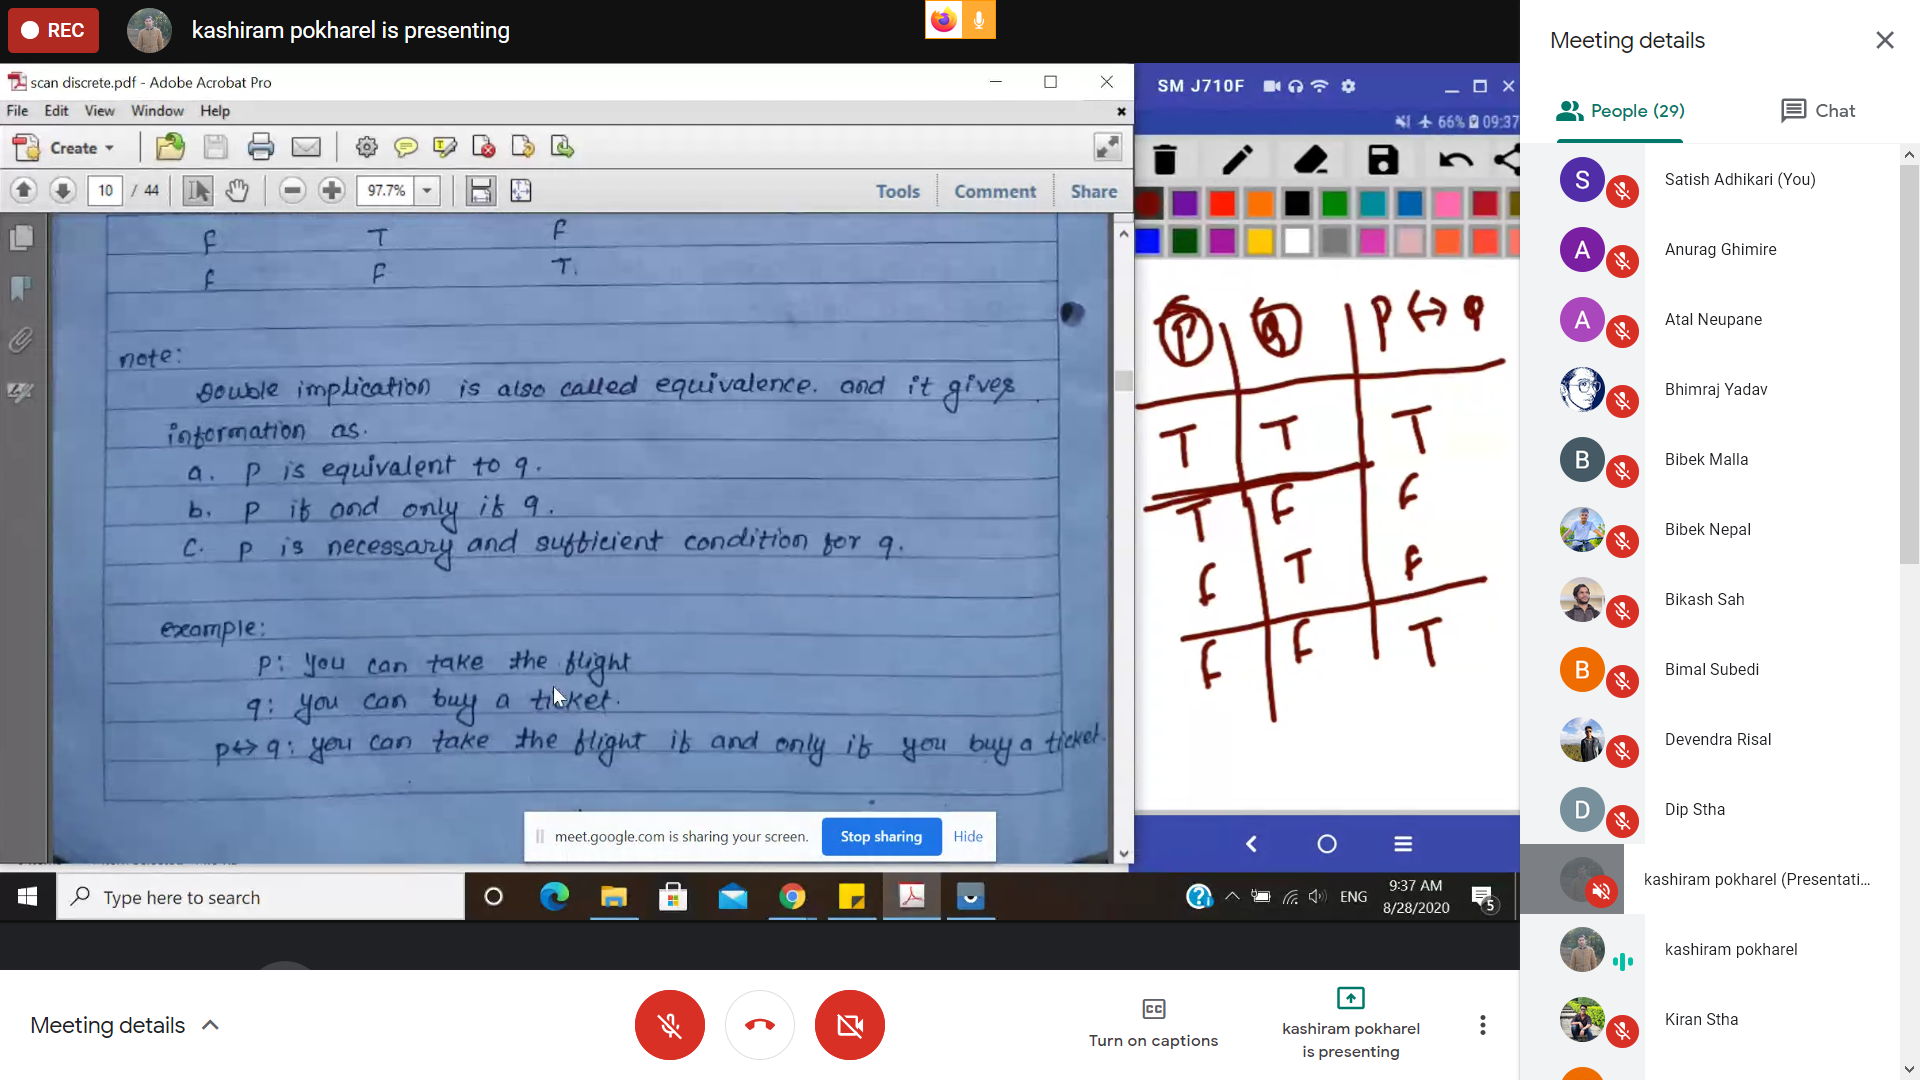 REC
kashiram pokharel is presenting
scan discrete.pdf - Adobe Acrobat Pro
File Edit View Window Help
Create
10 / 44
97.7%
Tools Comment Share
F T F
F F T.
note:
Double implication is also called equivalence. and it gives
information as.
a. p is equivalent to q.
b. p if and only if q.
c. p is necessary and sufficient condition for q.
example:
p: you can take the flight
q: you can buy a ticket.
p↔q: you can take the flight if and only if you buy a ticket.
meet.google.com is sharing your screen.
Stop sharing
Hide
SM J710F
66% 09:37
P Q P ↔ q
T T T
T F F
F T F
F F T
Type here to search
ENG
9:37 AM
8/28/2020
5
Meeting details
Turn on captions
kashiram pokharel
is presenting
Meeting details
People (29)
Chat
S Satish Adhikari (You)
A Anurag Ghimire
A Atal Neupane
Bhimraj Yadav
B Bibek Malla
Bibek Nepal
Bikash Sah
B Bimal Subedi
Devendra Risal
D Dip Stha
kashiram pokharel (Presentati...
kashiram pokharel
Kiran Stha